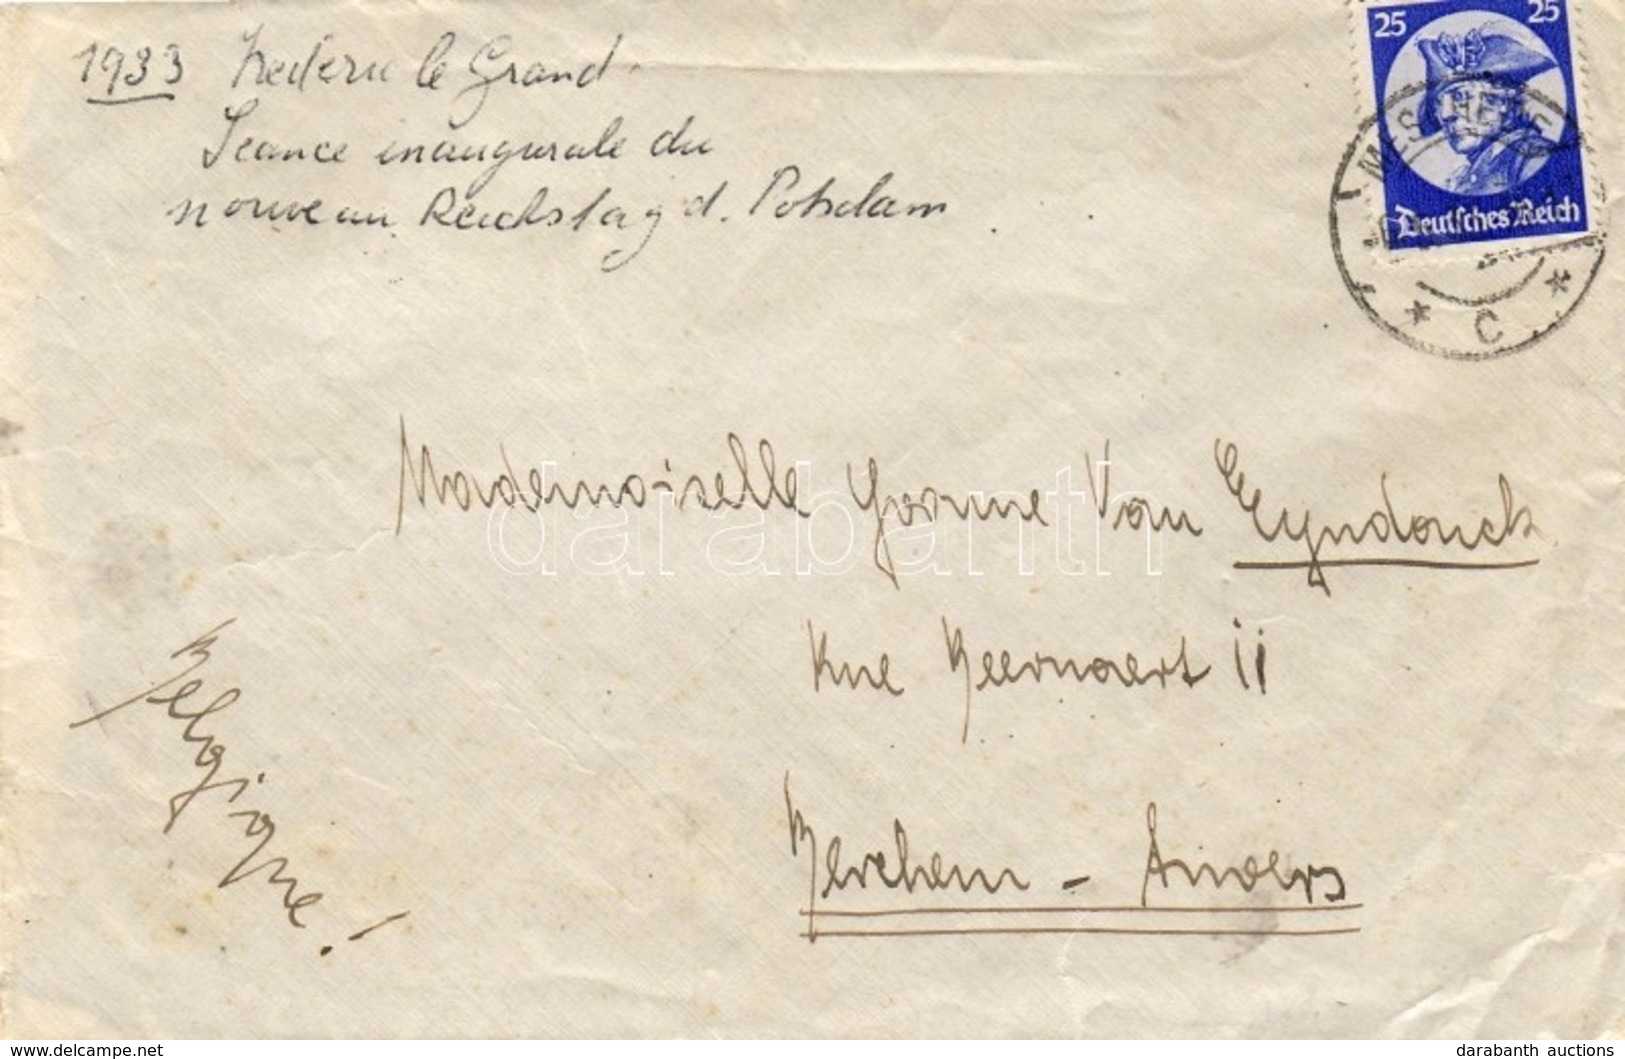 1933 Frederic le Grand
Séance inaugurale du
nouveau Reichstag d. Potsdam
25 25
MESCHEDE
Deutsches Reich
* C *
Mademoiselle Yvonne Van Eyndonck
Rue Beernaert 11
Berchem - Anvers
Belgique!
darabanth
www.delcampe.net
darabanth auctions